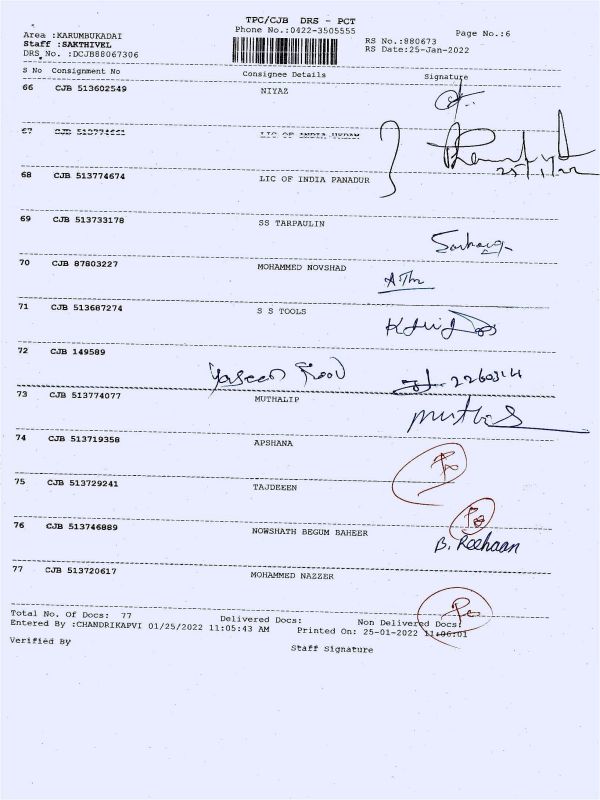 TPC/CJB DRS - PCT
Phone No.:0422-3505555
Page No.:6
Area :KARUMBUKADAI
RS No.:880673
Staff :SAKTHIVEL
RS Date:25-Jan-2022
DRS No. :DCJB88067306
S No Consignment No Consignee Details Signature
66 CJB 513602549 NIYAZ
67 CJB LIC OF INDIA
25/1/22
68 CJB 513774674 LIC OF INDIA PANADUR
69 CJB 513733178 SS TARPAULIN
70 CJB 87803227 MOHAMMED NOVSHAD
71 CJB 513687274 S S TOOLS
72 CJB 149589
Yaseen
73 CJB 513774077 MUTHALIP
74 CJB 513719358 APSHANA
75 CJB 513729241 TAJDEEEN
76 CJB 513746889 NOWSHATH BEGUM BAHEER
B. Reehaan
77 CJB 513720617 MOHAMMED NAZZER
Total No. Of Docs: 77 Delivered Docs: Non Delivered Docs:
Entered By :CHANDRIKAPVI 01/25/2022 11:05:43 AM Printed On: 25-01-2022 11:06:01
Verified By Staff Signature